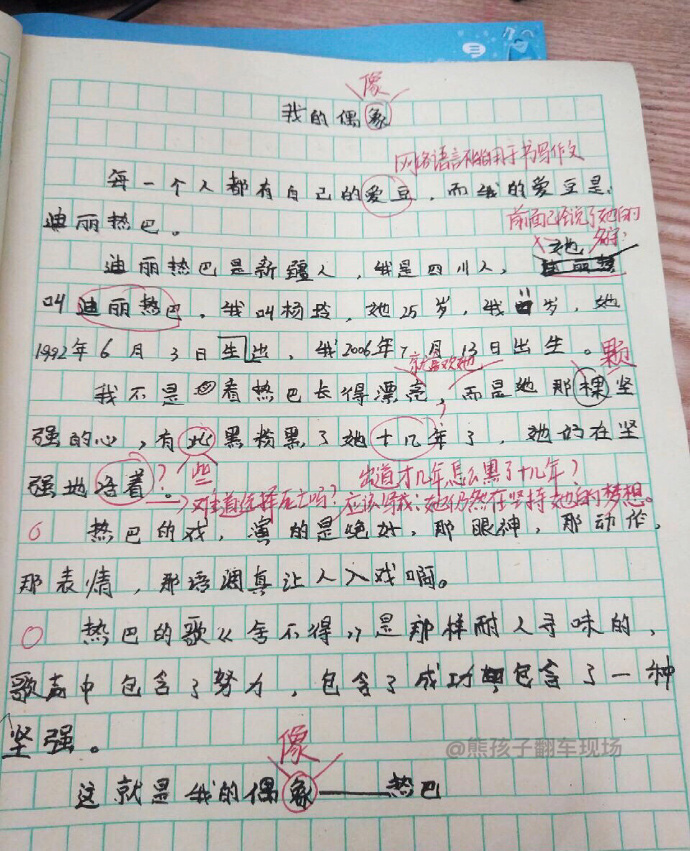 像
我的偶象
网络语言不能用于书写作文
每一个人都有自己的爱豆，而我的爱豆是
迪丽热巴。
前面已经说了她的
名字
迪丽热巴是新疆人，我是四川人，她
叫迪丽热巴，我叫杨玲，她25岁，我11岁，她
1992年6月3日生出，我2006年7月13日出生。
就喜欢她
颗
我不是因看热巴长得漂亮，而是她那棵坚
强的心，有此黑粉黑了她十几年了，她好在坚
强地活着。
？些 出道才几年怎么黑了十几年？
难道选择死亡吗？应该写成：她仍然在坚持她的梦想。
热巴的戏，演的是绝好，那眼神，那动作，
那表情，那语调真让人入戏啊。
热巴的歌《舍不得》是那样耐人寻味的，
歌声中包含了努力，包含了成功包含了一种
坚强。
@熊孩子翻车现场
像
这就是我的偶象——热巴